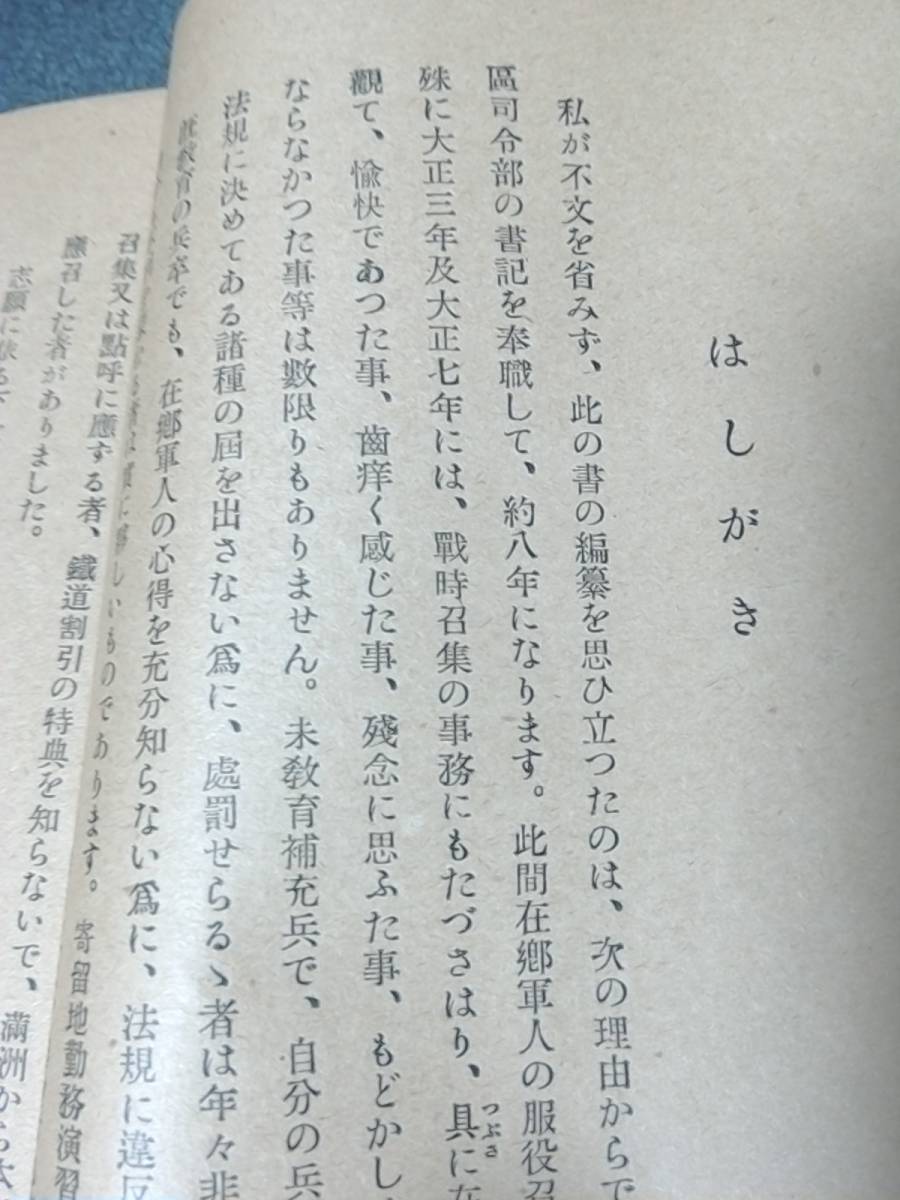 はしがき
私が不文を省みず、此の書の編纂を思ひ立つたのは、次の理由からで
區司令部の書記を奉職して、約八年になります。此間在鄕軍人の服役召
殊に大正三年及大正七年には、戰時召集の事務にもたづさはり、具に在
つぶさ
觀て、愉快であつた事、齒痒く感じた事、殘念に思ふた事、もどかし
ならなかつた事等は數限りもありません。未敎育補充兵で、自分の兵
法規に決めてある諸種の屆を出さない爲に、處罰せらるゝ者は年々非
敎育の兵卒でも、在鄕軍人の心得を充分知らない爲に、法規に違反
しいものであります。寄留地勤務演習
召集又は點呼に應ずる者、鐵道割引の特典を知らないで、滿洲から
應召した者がありました。
志願に依る